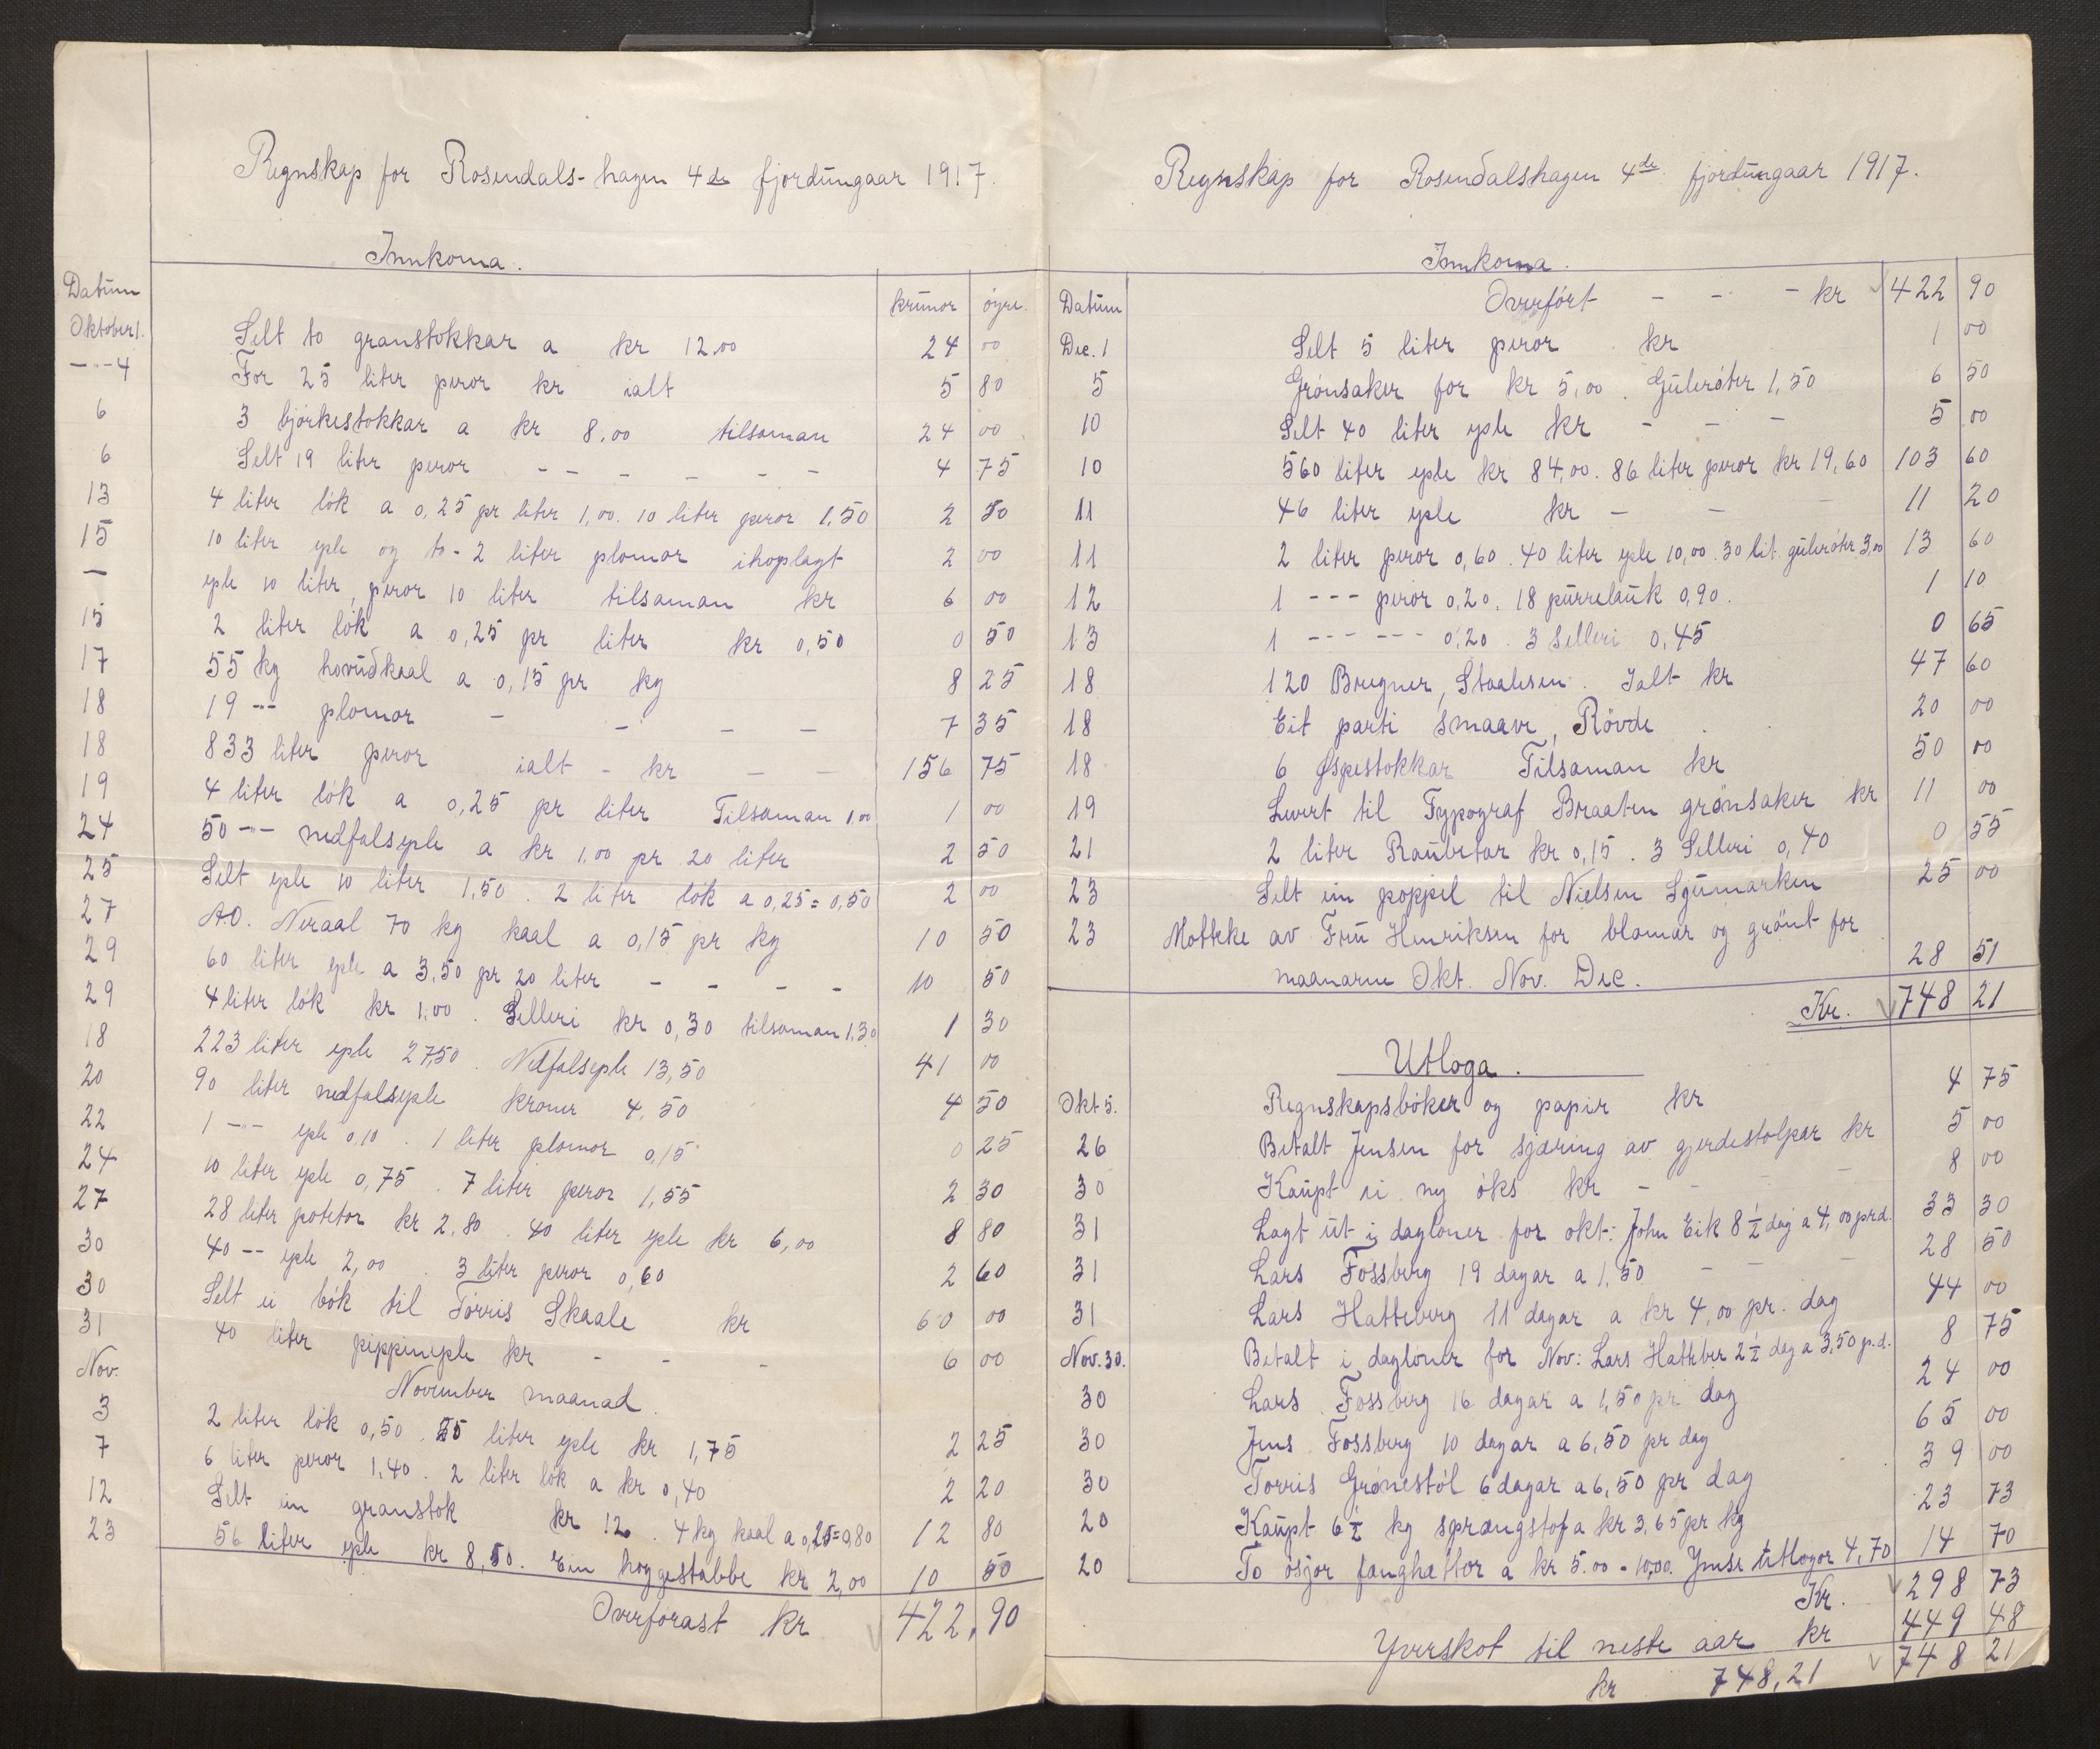 Regnskap for Rosendals-hagen 4de fjordungaar 1917.
Innkoma.
Datum krunor öyre.
Oktober 1. Selt to granstokkar a kr 12,00 24 00
---4 For 25 liter peror kr ialt 5 80
6 3 bjørkestokkar a kr 8,00 tilsaman 24 00
6 Selt 19 liter peror - - - - - - 4 75
13 4 liter lök a 0,25 pr liter 1,00. 10 liter peror 1,50 2 50
15 10 liter eple og to - 2 liter plomor ihoplagt 2 00
— eple 10 liter, peror 10 liter tilsaman kr 6 00
15 2 liter lök a 0,25 pr liter kr 0,50 0 50
17 55 kg hovudkaal a 0,15 pr kg 8 25
18 19 --- plomor - - - - 7 35
18 833 liter peror ialt - kr - - 156 75
19 4 liter lök a 0,25 pr liter Tilsaman 1,00 1 00
24 50 --- nedfalseple a kr 1,00 pr 20 liter 2 50
25 Selt eple 10 liter 1,50. 2 liter lök a 0,25 = 0,50 2 00
27 A.O. Neraal 70 kg kaal a 0,15 pr kg 10 50
29 60 liter eple a 3,50 pr 20 liter - - - - 10 50
29 4 liter lök kr 1,00. Selleri kr 0,30 tilsaman 1,30 1 30
18 223 liter eple 27,50. Nedfalseple 13,50 41 00
20 90 liter nedfalseple kroner 4,50 4 50
22 1 --- eple 0,10. 1 liter plomor 0,15 0 25
24 10 liter eple 0,75. 7 liter peror 1,55 2 30
27 28 liter potetor kr 2,80. 40 liter eple kr 6,00 8 80
30 40 -- eple 2,00. 3 liter peror 0,60 2 60
30 Selt ei bök til Torris Skaale kr 60 00
31 40 liter pippineple kr - - - 6 00
Nov. November maanad.
3 2 liter lök 0,50. 25 liter eple kr 1,75 2 25
7 6 liter peror 1,40. 2 liter lök a kr 0,40 2 20
12 Selt ein granstok kr 12. 4 kg kaal a 0,25=0,80 12 80
23 56 liter eple kr 8,50. Ein hoggestabbe kr 2,00 10 50
Overförast kr 422,90
Regnskap for Rosendalshagen 4de fjordungaar 1917.
Innkoma.
Datum Overfört - - - kr 422 90
Dec. 1 Selt 5 liter peror kr 1 00
5 Grönsaker for kr 5,00. Guleröter 1,50 6 50
10 Selt 40 liter eple kr - - - 5 00
10 560 liter eple kr 84,00. 86 liter peror kr 19,60 103 60
11 46 liter eple kr - - - 11 20
11 2 liter peror 0,60. 40 liter eple 10,00. 30 lit. guleröter 3,00 13 60
12 1 --- peror 0,20. 18 purrelauk 0,90. 1 10
13 1 --- --- 0,20. 3 Selleri 0,45 0 65
18 120 Bregner, Staalesen. Ialt kr 47 60
18 Eit parti smaave, Rövde 20 00
18 6 Øspestokkar Tilsaman kr 50 00
19 Levert til Typograf Braaten grønsaker kr 11 00
21 2 liter Raubetar kr 0,15. 3 Selleri 0,40 0 55
23 Selt ein poppel til Nielsen Sgumarken 25 00
23 Motteke av Fru Henriksen for blomar og grönt for
maanarne Okt. Nov. Dec. 28 51
Kr. 748 21
Utloga.
Okt 5. Regnskapsböker og papir kr 4 75
26 Betalt Jensen for sjæring av gjerdestolpar kr 5 00
30 Kaupt ei ny öks kr - - - - 8 00
31 Lagt ut i daglöner for okt: John Eik 8½ dag a 4,00 pr d. 33 30
31 Lars Fossberg 19 dagar a 1,50 - - - 28 50
31 Lars Hatteberg 11 dagar a kr 4,00 pr. dag 44 00
Nov. 30. Betalt i daglöner for Nov: Lars Hatteber 2½ dag a 3,50 p.d. 8 75
30 Lars Fossberg 16 dagar a 1,50 pr dag 24 00
30 Jens Fossberg 10 dagar a 6,50 pr dag 65 00
30 Torris Grønestöl 6 dagar a 6,50 pr dag 39 00
20 Kaupt 6½ kg sprængstof a kr 3,65 pr kg 23 73
20 To ösjor fænghættor a kr 5.00 = 10,00. Ymse utlogor 4,70 14 70
Kr. 298 73
Yverskot til neste aar kr 449 48
kr 748,21 748 21